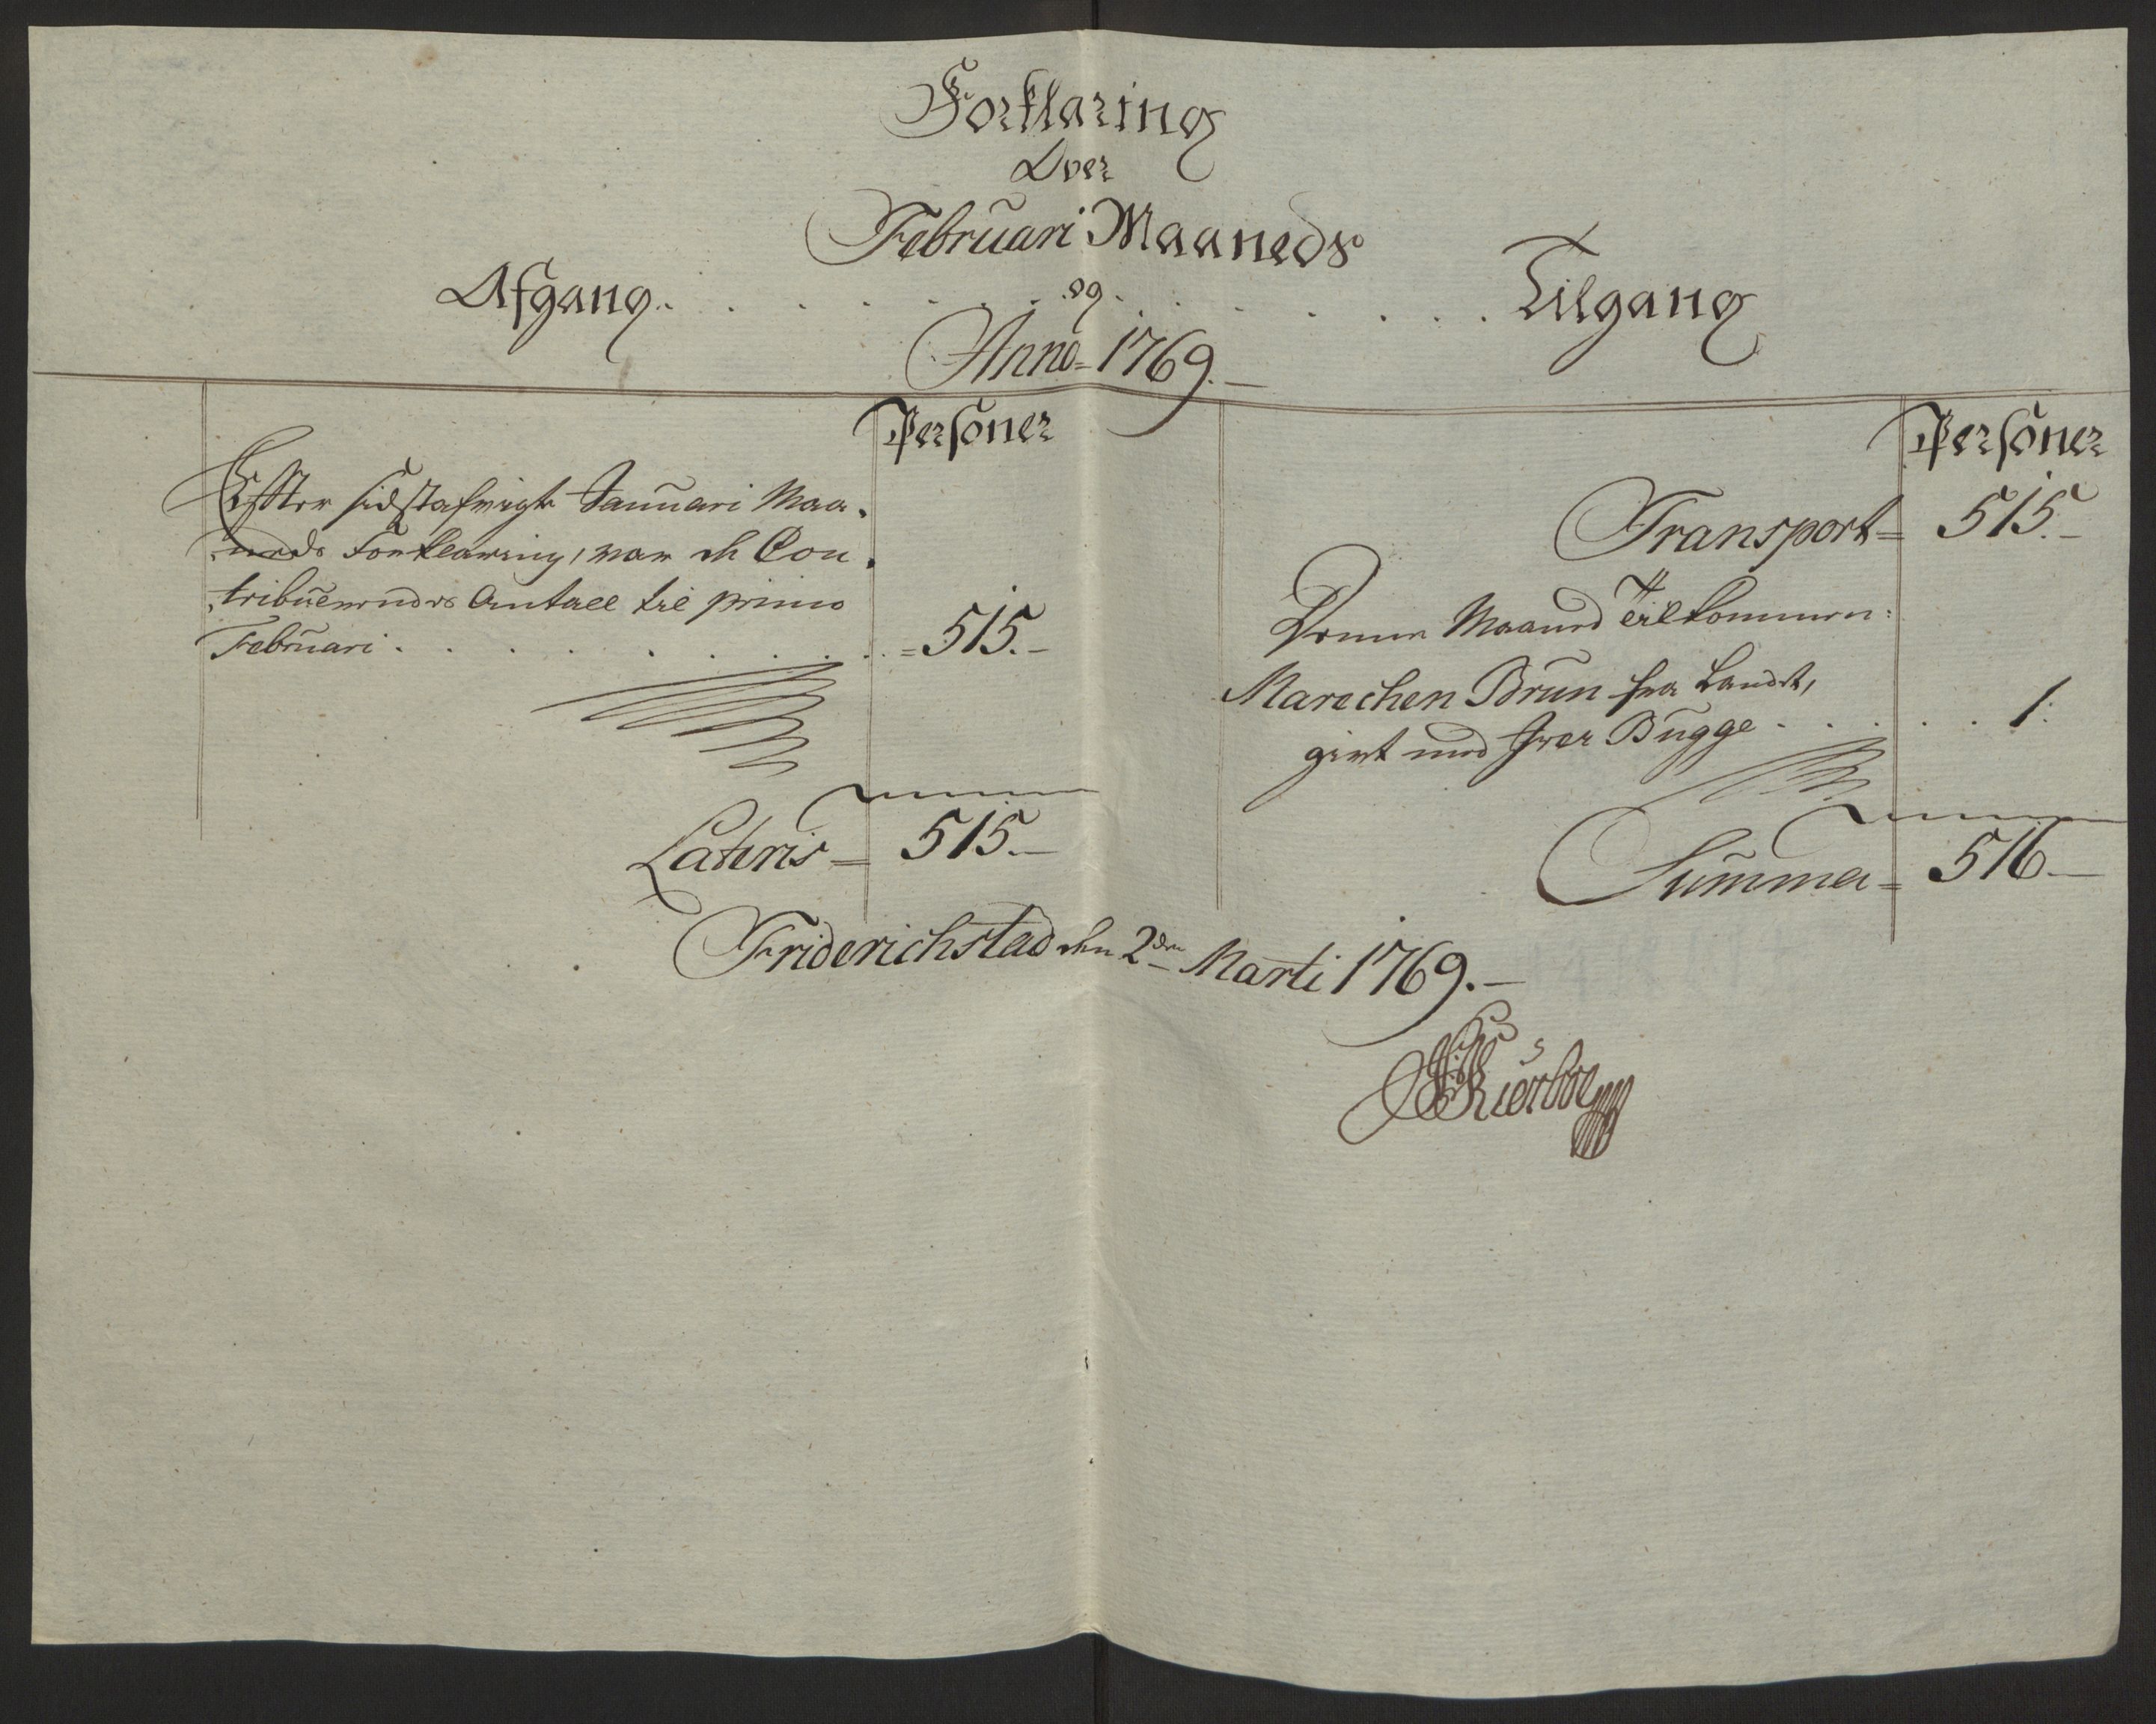 Forklaring
Over
Februari Maaneds
Afgang . . . . . . og . . . . . . Tilgang
Anno 1769.
Personer
Efter sidstafvigte Januari Maa-
neds Forklaring, var de Con-
tribuerendes Antall til primo
Februari . . . . . . . . = 515.-
Lateris = 515.-
Personer
Transport = 515.-
Denne Maaned Tilkommen:
Marechen Brun fra Landet,
givt med Iver Bugge . . . . . 1.
Summa = 516-
Friderichstad den 2den Marti 1769.-